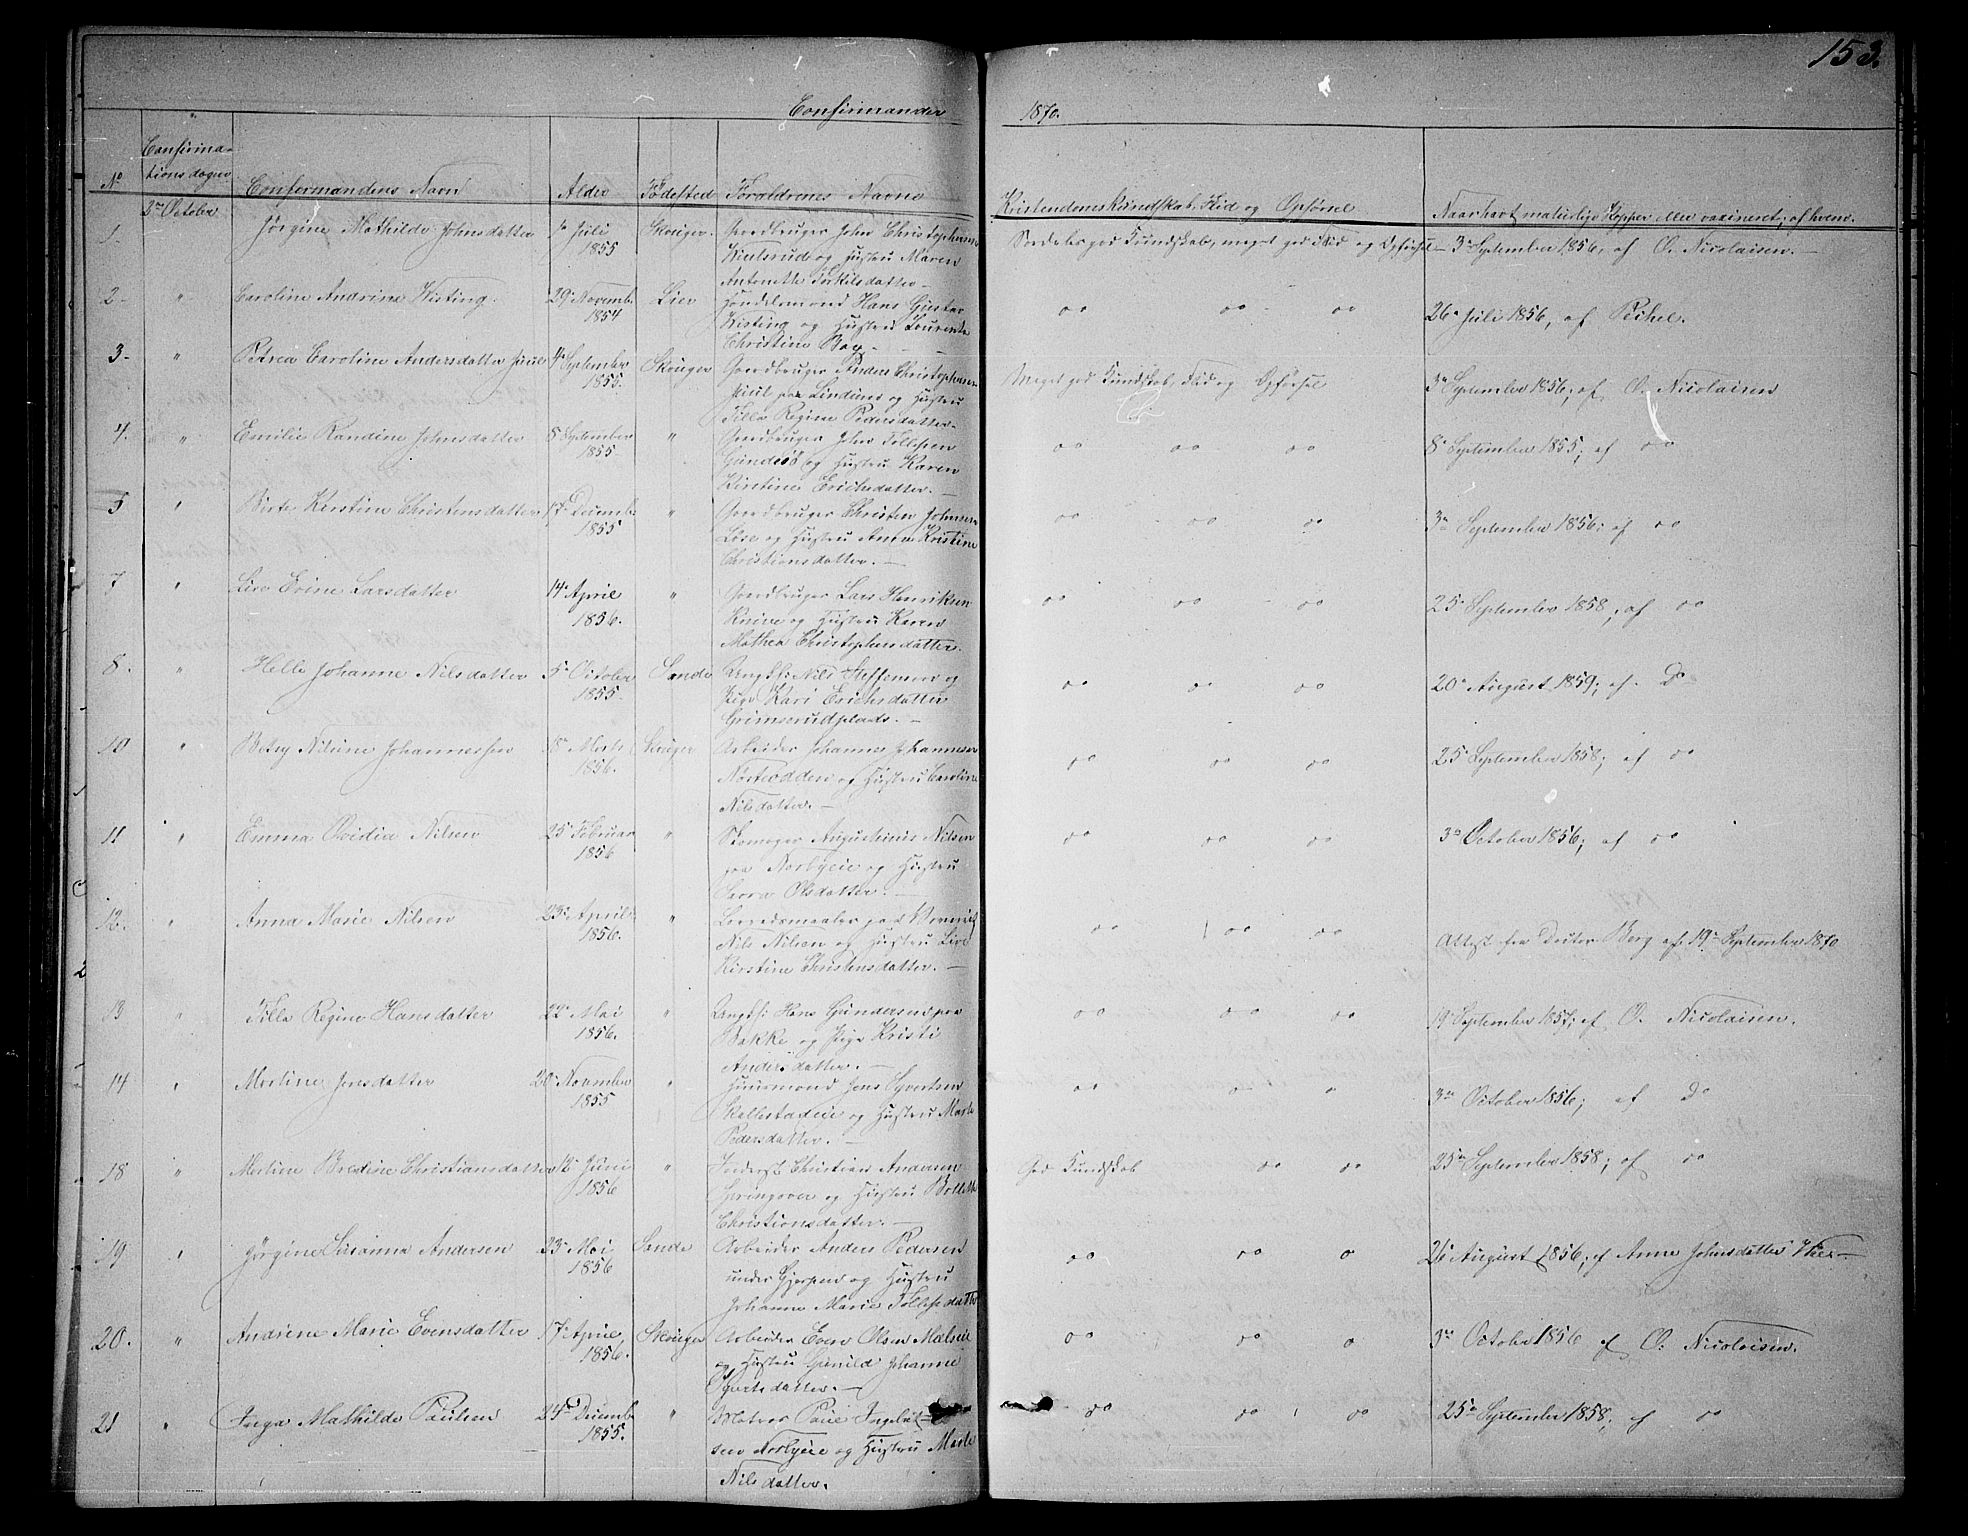 153.
Confirmander
1870.
Confirma-
tionsdagen
No
Confirmandens Navn
Alder
Fødested
Forældrenes Navne
Kristendomskundskab, Flid og Opførsel
Naar havt naturlige Kopper eller vaccineret; af hvem.
2den October
1.
Jørgine Mathilde Johnsdatter
1e Juli
1855
Skouger.
Gaardbruger John Christophersen
og Hustru Maren
Antonette Torkilsdatter -
Særdeles god Kundskab, meget god Flid og Opførsel -
3e September 1856, af O. Nicolaisen. -
2.
"
Caroline Andrine Wisting.
29e Novemb.
1854
Lier
Handelsmand Hans Gustav
Wisting og Hustru Laurentse
Christine Boy. -
do do do
26e Juli 1856, af Peihel.
3.
"
Petrea Caroline Andersdatter Juul
4e September
1855.
Skouger
Gaardbruger Anders Christophersen
Juul paa Lindum og Hustru
Tilla Regine Pedersdatter. -
Meget god Kundskab, Flid og Opførsel
3e September 1856, af O. Nicolaisen
4.
"
Emilie Randine Johnsdatter
8 September
1855
"
Gaardbruger John Tollefsen
Gundesø og Hustru Karen
Kirstine Erichsdatter. -
do do do
8e September 1855; af do
5
"
Birte Kirstine Christensdatter
17e Decemb.
1855
"
Gaardbruger Christen Johnsen
og Hustru Anne Kristine
Christiansdatter. -
do do do
3e September 1856; af do
7
"
Lise Evine Larsdatter
14e April
1856.
"
Gaardbruger Lars Henriksen
Knive og Hustru Karen
Mathea Christophersdatter.
do do do
25e September 1858; af do
8.
"
Helle Johanne Nilsdatter
5e October
1855.
Sande
Ungkf: Nils Steffensen og
Pige Kari Erichsdatter
Grimserudplads. -
do do do
20e August 1859; af Do
10
"
Betsy Niline Johannessen
18e Marts
1856.
Skouger
Arbeider Johannes Johannesen
Nørteødden og Hustru Caroline
Nilsdatter. -
do do do
25e September 1858; af do
11
"
Emma Ovidia Nilsen
25e Februar
1856
"
Skomager Augustinus Nilsen
paa Norbyeie og Hustru
Sara Olsdatter. -
do do do
3e October 1856; af do
12.
"
Anna Marie Nilsen
23e April
1856.
"
Nils Nilsen og Hustru Lise
Kirstine Christensdatter. -
do do do
Attest fra Doctor Berg af 19e September 1870
13
"
Tilla Regine Hansdatter
22e Mai
1856.
"
Ungkf: Hans Gundersen paa
Bakke og Pige Kristi
Andersdatter. -
do do do
19e September 1857; af O. Nicolaisen.
14
"
Martine Jensdatter
20e November
1855
"
Huusmand Jens Syvertsen
Skallestadeie og Hustru Marte
Pedersdatter. -
do do do
3e October 1856; af Do
18
"
Martine Bredine Christiansdatter
12e Juni
1856
"
Inderst Christian Andersen
og Hustru Bollette
Christiansdatter. -
God Kundskab do do
25e September 1858; af do
19
"
Jørgine Susanna Andersen
23e Mai
1856
Sande
Arbeider Anders Pedersen
under Gjerpen og Hustru
Johanne Marie Tollefsdatter
do do do
26 August 1856; af Anne Johnsdatter
20.
"
Andrine Marie Evensdatter
17e April,
1856.
Skouger
Arbeider Even Olsen
og Hustru Gunild Johanne
Syvertsdatter. -
do do do
3e October 1856 af O. Nicolaisen.
21
"
Inga Mathilde Paulsen
24e Decemb.
1855.
"
Matros Paul Ingebret-
sen Norbyeie og Hustru Marte
Nilsdatter.
do do do
25e September 1858; af do